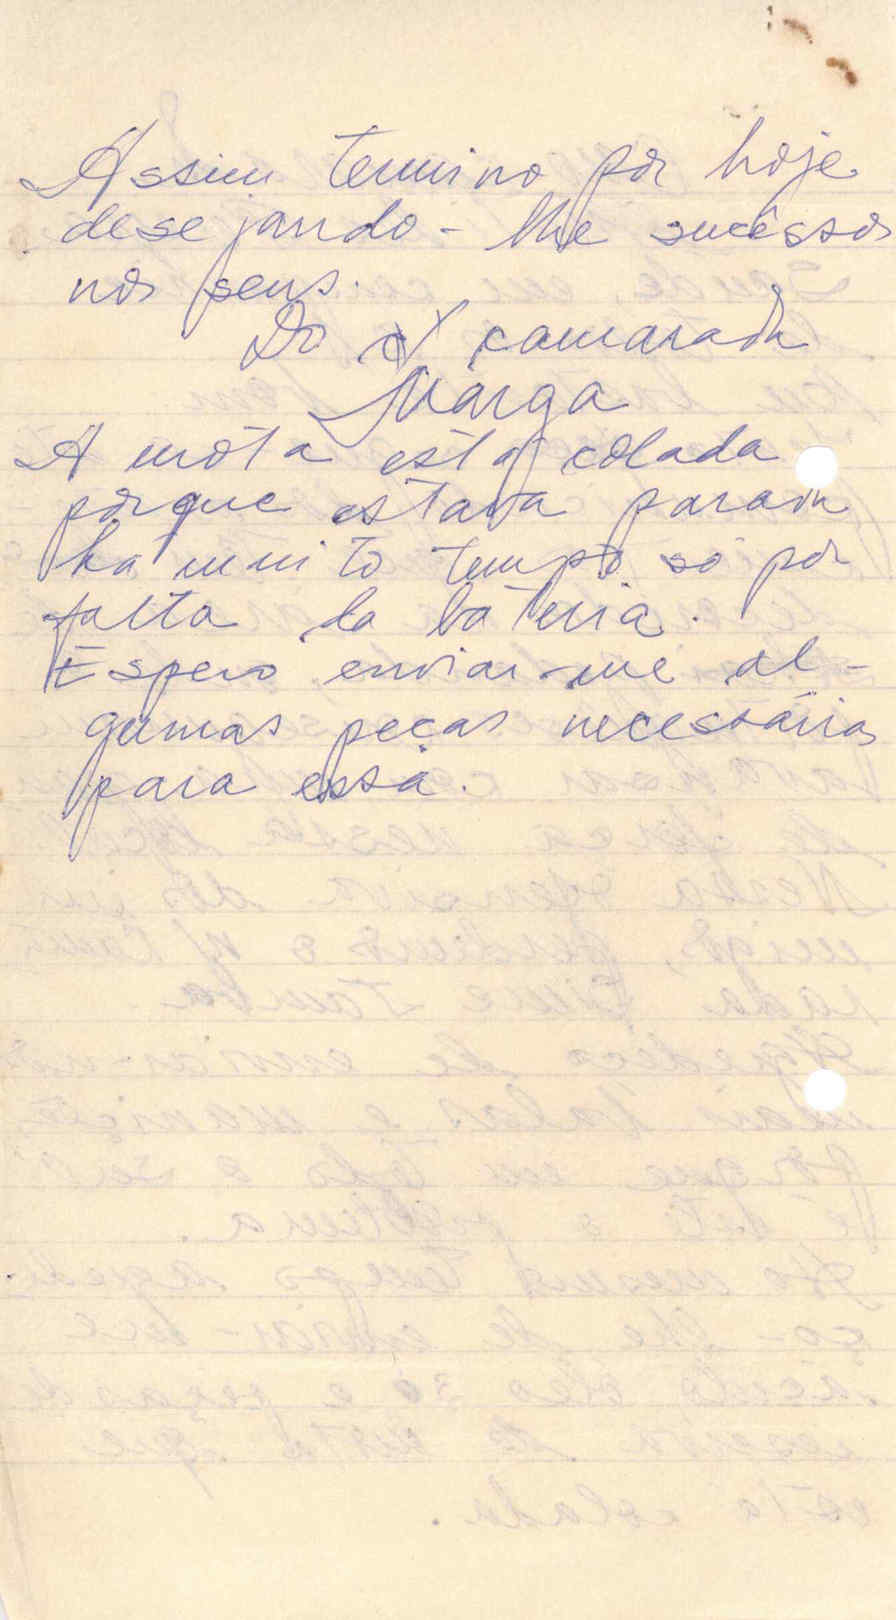 Assim termino por hoje
desejando-lhe sucêssos
nos seus.
Do camarada
Marga
A mota está colada
porque estava parada
ha muito tempo só por
falta da bateria.
Espero enviar-me al-
gumas peças necessárias
para essa.